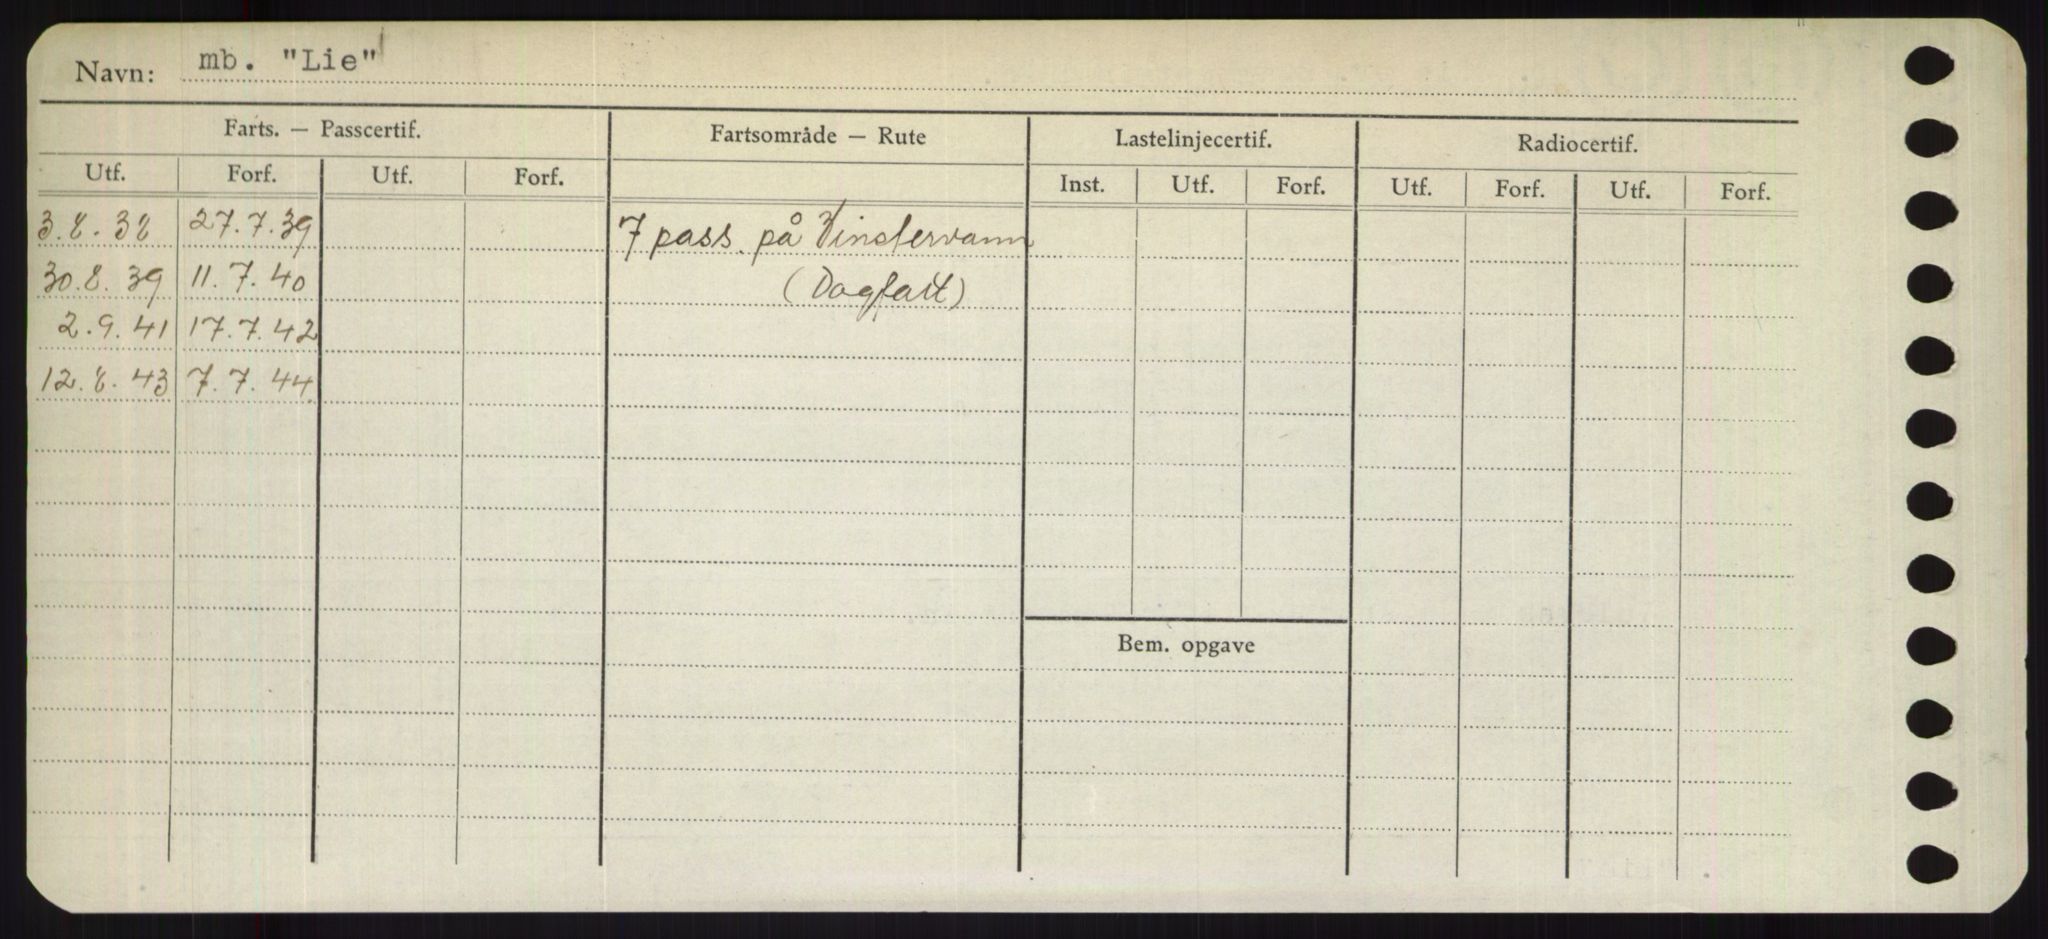 Navn: mb. "Lie"
Farts. — Passcertif. Fartsområde — Rute Lastelinjecertif. Radiocertif.
Utf. Forf. Utf. Forf. Inst. Utf. Forf. Utf. Forf. Utf. Forf.
3.8.38 27.7.39 7 pass. på Vinstervann
30.8.39 11.7.40 (Dagfart)
2.9.41 17.7.42
12.8.43 7.7.44.
Bem. opgave